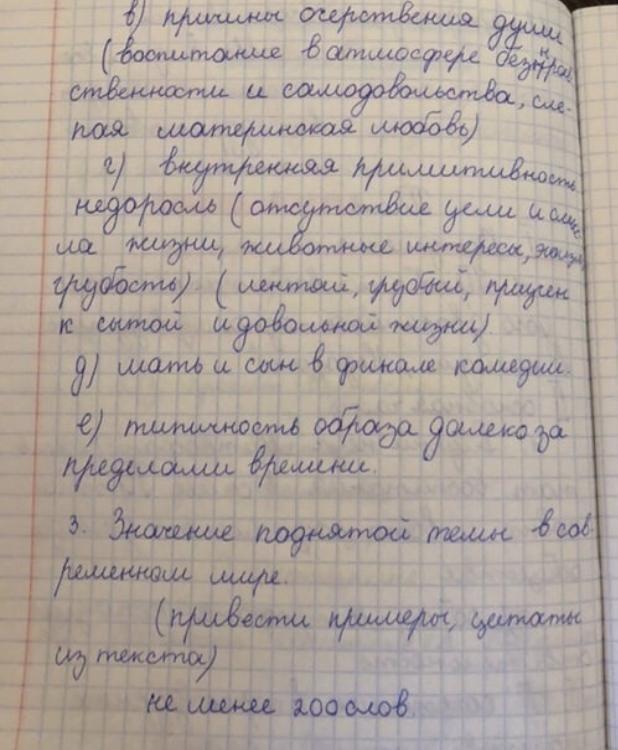 в) причины очерствения души
(воспитание в атмосфере безнрав
ственности и самодовольства, сле-
пая материнская любовь)
г) внутренняя примитивность
недоросль (отсутствие цели и смыс
ла жизни, животные интересы,
грубость) (лентяй, грубый, прицен
к сытой и довольной жизни).
д) мать и сын в финале комедии.
е) типичность образа далеко за
пределами времени.
3. Значение поднятой темы в сов
ременном мире.
(привести примеры, цитаты
из текста)
не менее 200 слов.